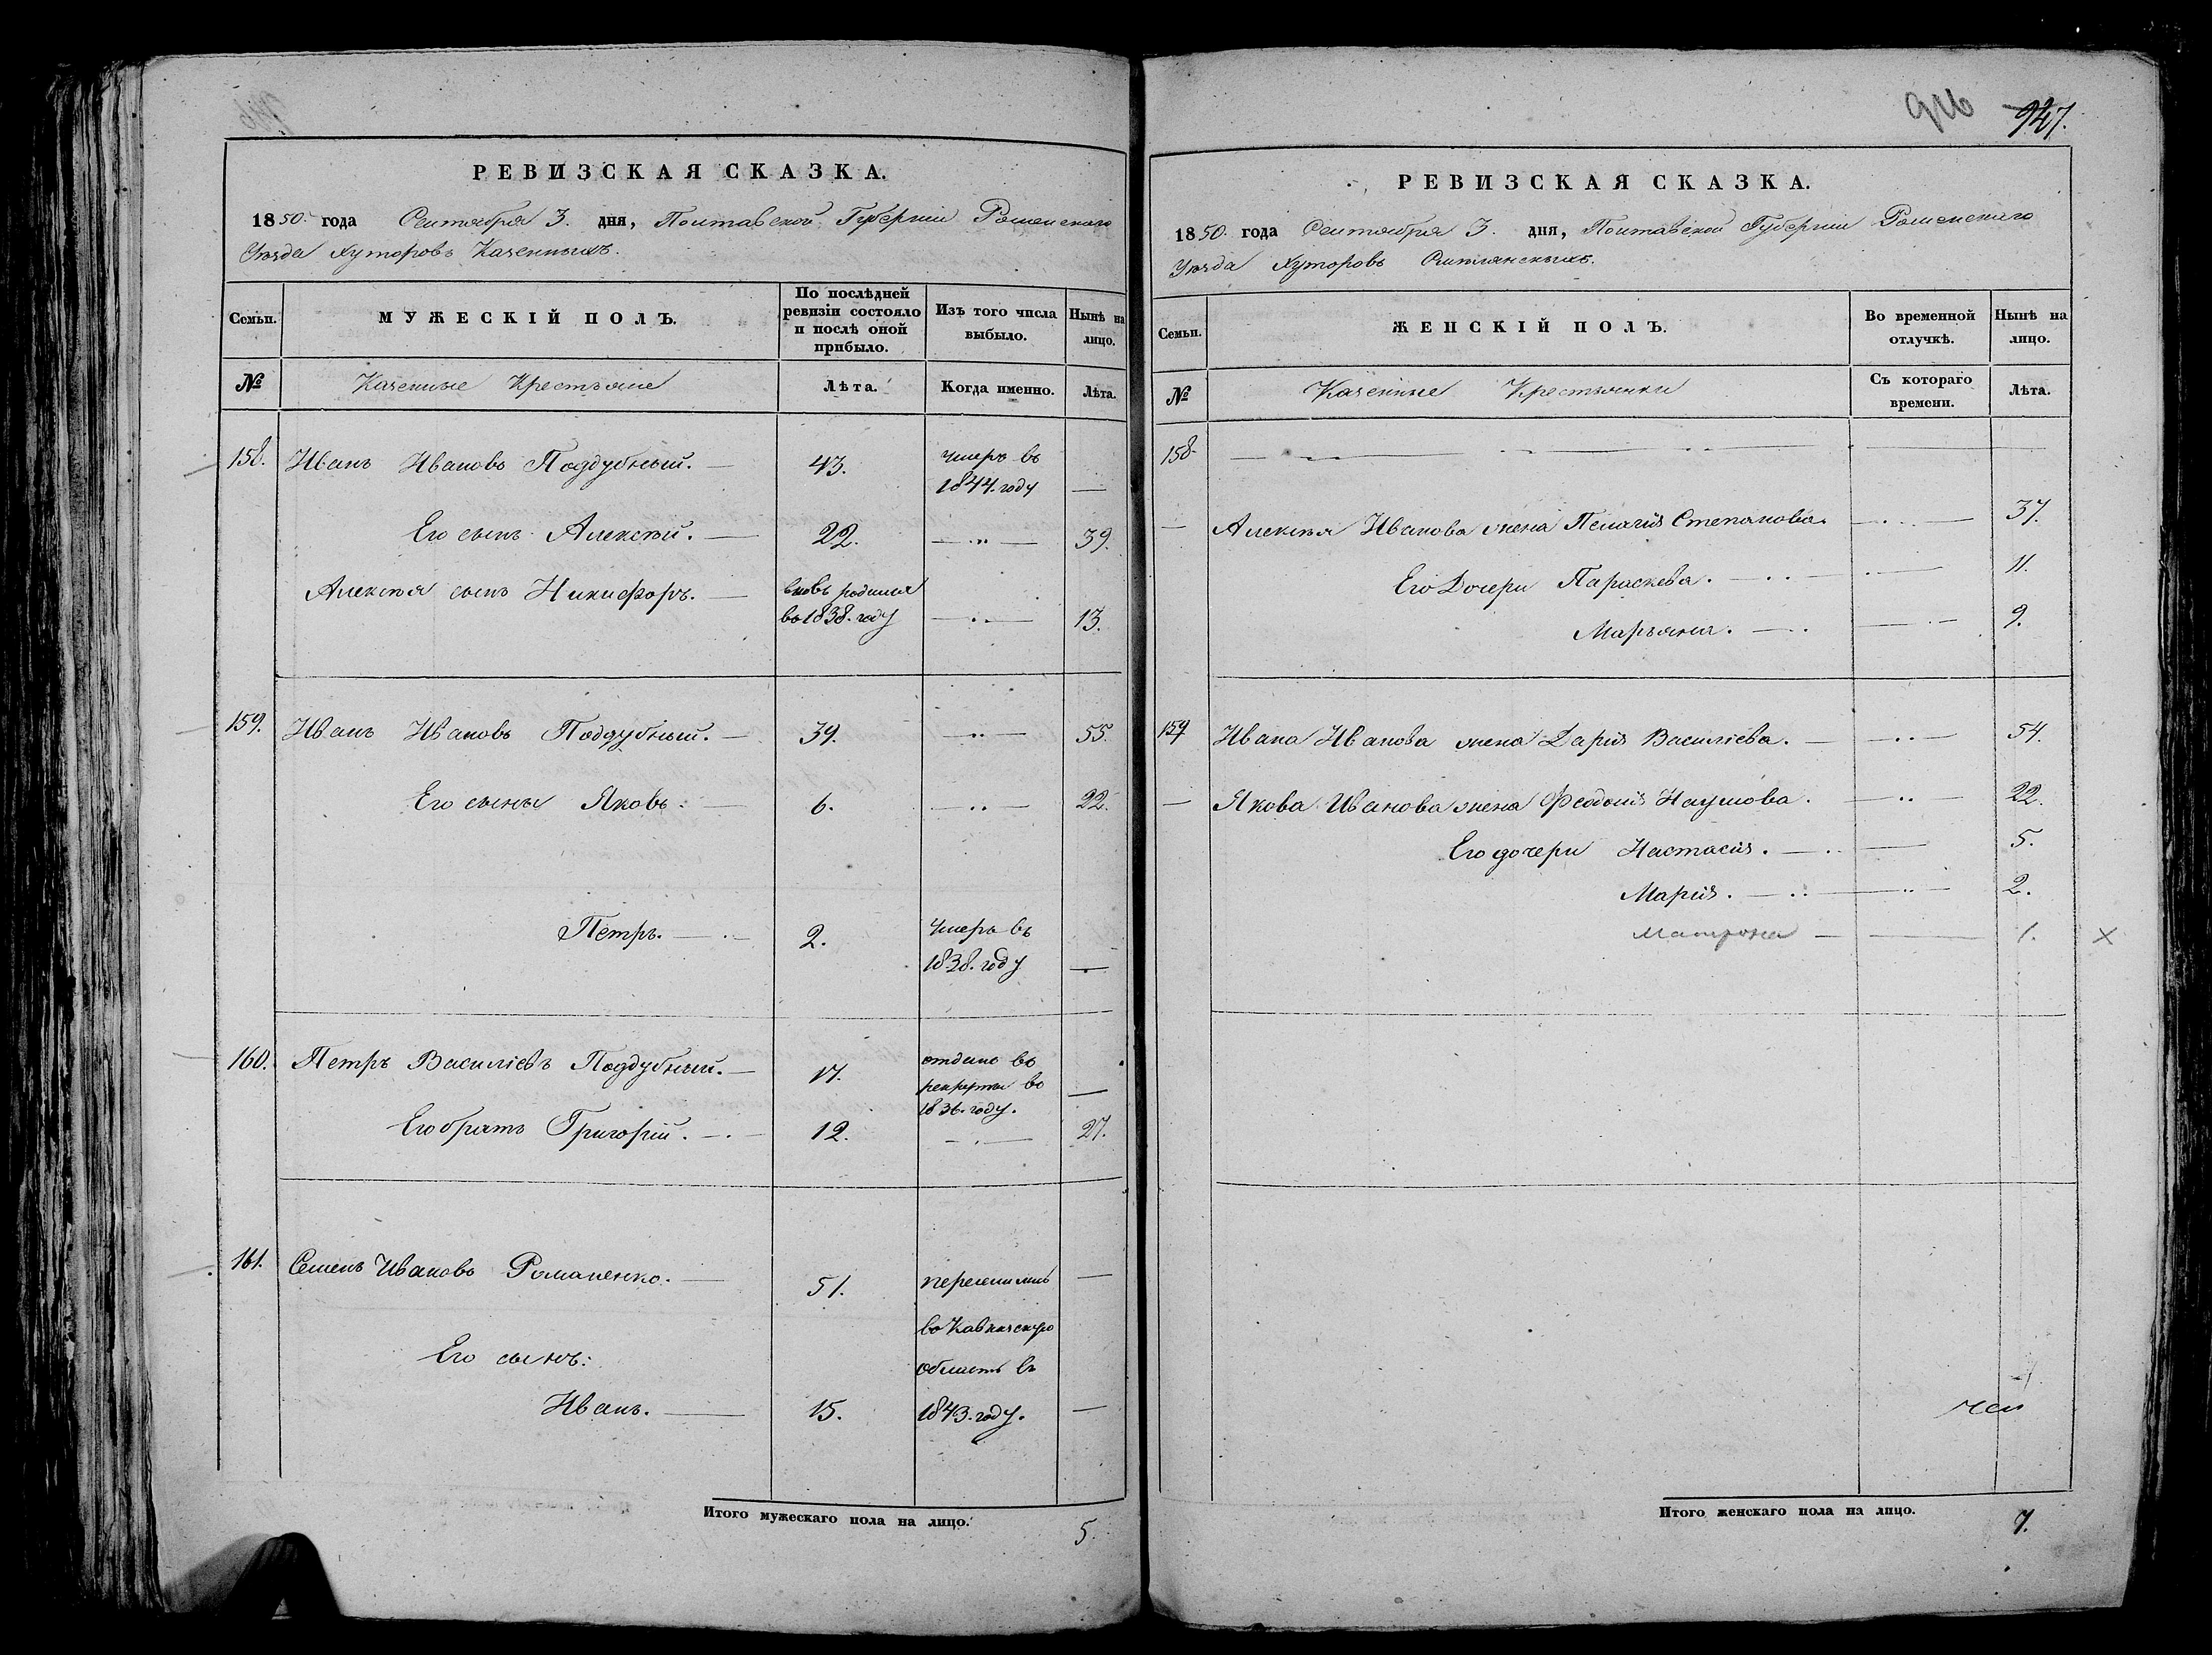 916 947.
РЕВИЗСКАЯ СКАЗКА.
1850. года Сентября 3. дня, Полтавской Губерніи Роменскаго
Уезда Хуторовъ Казенныхъ.
Семьи.
МУЖЕСКІЙ ПОЛЪ.
По послѣдней ревизіи состояло и послѣ оной прибыло.
Изъ того числа выбыло.
Нынѣ на лицо.
№
Казенные Крестьяне
Лѣта.
Когда именно.
Лѣта.
158. Иванъ Ивановъ Поддубный. — 43. умеръ въ
1844. году —
Его сынъ Алексѣй. — 22. — „ — 39.
Алексѣя сынъ Никифоръ. — вновь родился
въ 1838. году — 13.
159. Иванъ Ивановъ Поддубный. — 39. — „ — 55.
Его сыны Яковъ. — 6. — „ — 22.
Петръ. — 2. умеръ въ
1838. году —
160. Петръ Василіевъ Поддубный. — 17. отданъ въ
рекруты въ
1836. году. —
Его братъ Григорій. — 12. — 27.
161. Семенъ Ивановъ Романенко. — 51. переселились —
въ Кавказскую
Его сынъ:
область въ
Иванъ. — 15. 1843. году. —
Итого мужескаго пола на лицо. 5.
РЕВИЗСКАЯ СКАЗКА.
1850. года Сентября 3. дня, Полтавской Губерніи Роменскаго
Уезда Хуторовъ
Семьи.
ЖЕНСКІЙ ПОЛЪ.
Во временной отлучкѣ.
Нынѣ на лицо.
№
Казенные Крестьянки
Съ котораго времени.
Лѣта.
158. —
— Алексѣя Иванова жена Пелагія Степанова. — 37.
Его Дочери Параскева. — 11.
Марьяна. — 9.
159 Ивана Иванова жена Дарія Василіева. — „ — 54.
— Якова Иванова жена Феодосія Наумова. — „ — 22.
Его дочери Настасія. — 5.
Марія. — „ — 2.
Матрона — 1. ×
Итого женскаго пола на лицо. 7.